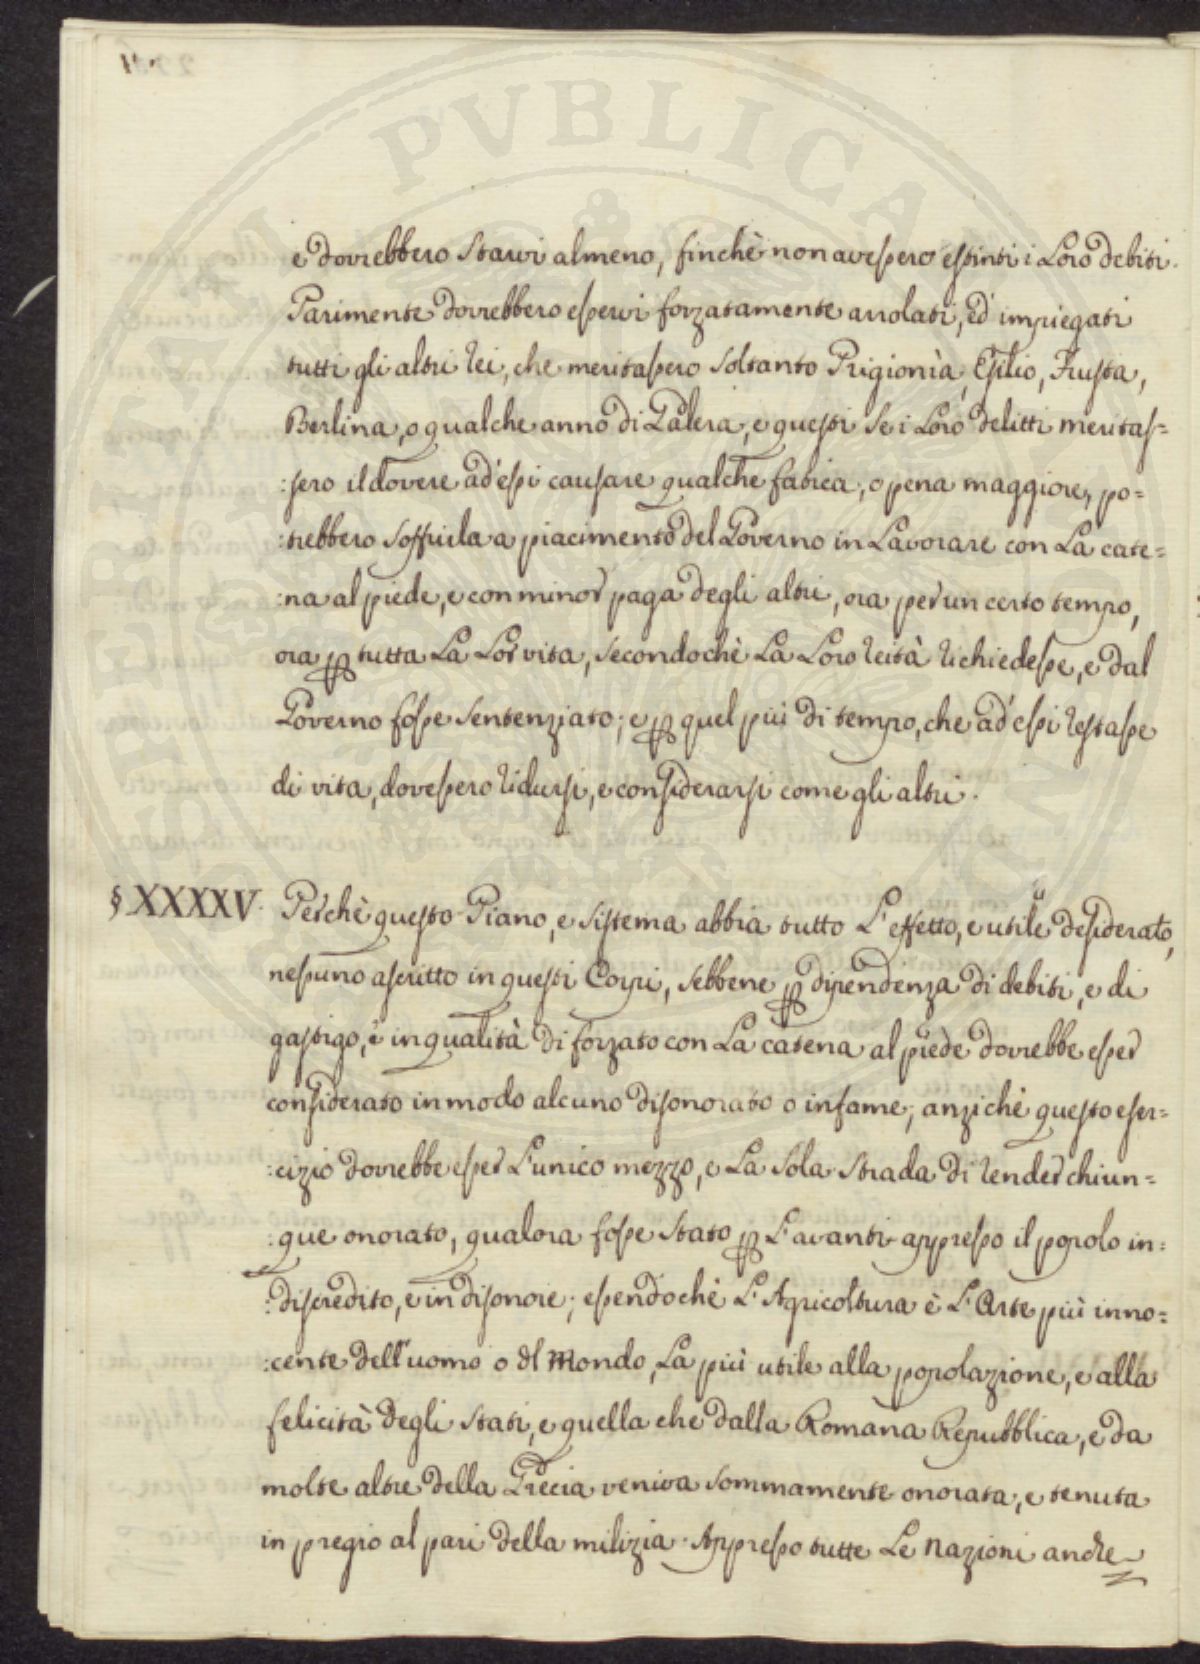 PVBLICAE
e dovrebbero starvi almeno, finchè non avessero estinti i Loro debiti.
Parimente dovrebbero esservi forzatamente arrolati, ed impiegati
tutti gli altri rei, che meritassero soltanto Prigionìa, Esilio, Frusta,
Berlina, o qualche anno di Galera, e questi se i Loro delitti meritas=
:sero il dovere ad essi causare qualche fatica, o pena maggiore, po=
:trebbero soffrirla a piacimento del Governo in Lavorare con La cate=
:na al piede, e con minor paga degli altri, ora per un certo tempo,
ora ꝑ tutta La Lor vita, secondochè La Loro reità richiedesse, e dal
Governo fosse sentenziato; e ꝑ quel più di tempo, che ad essi restasse
di vita, dovessero ridursi, e considerarsi come gli altri.
§ XXXXV. Perchè questo Piano, e sistema abbia tutto L'effetto, e utile desiderato,
nessuno ascritto in questi Corpi, sebbene ꝑ dipendenza di debiti, e di
gastigo, e in qualità di forzato con La catena al piede dovrebbe esser
considerato in modo alcuno disonorato o infame; anzichè questo eser=
:cizio dovrebbe esser L'unico mezzo, e La sola strada di render chiun=
:que onorato, qualora fosse stato ꝑ L'avanti appresso il popolo in=
:discredito, e in disonore; essendochè L'Agricoltura è L'Arte più inno=
:cente dell'uomo o del Mondo, La più utile alla popolazione, e alla
felicità degli Stati, e quella che dalla Romana Repubblica, e da
molte altre della Grecia veniva sommamente onorata, e tenuta
in pregio al pari della milizia. Appresso tutte Le nazioni anche